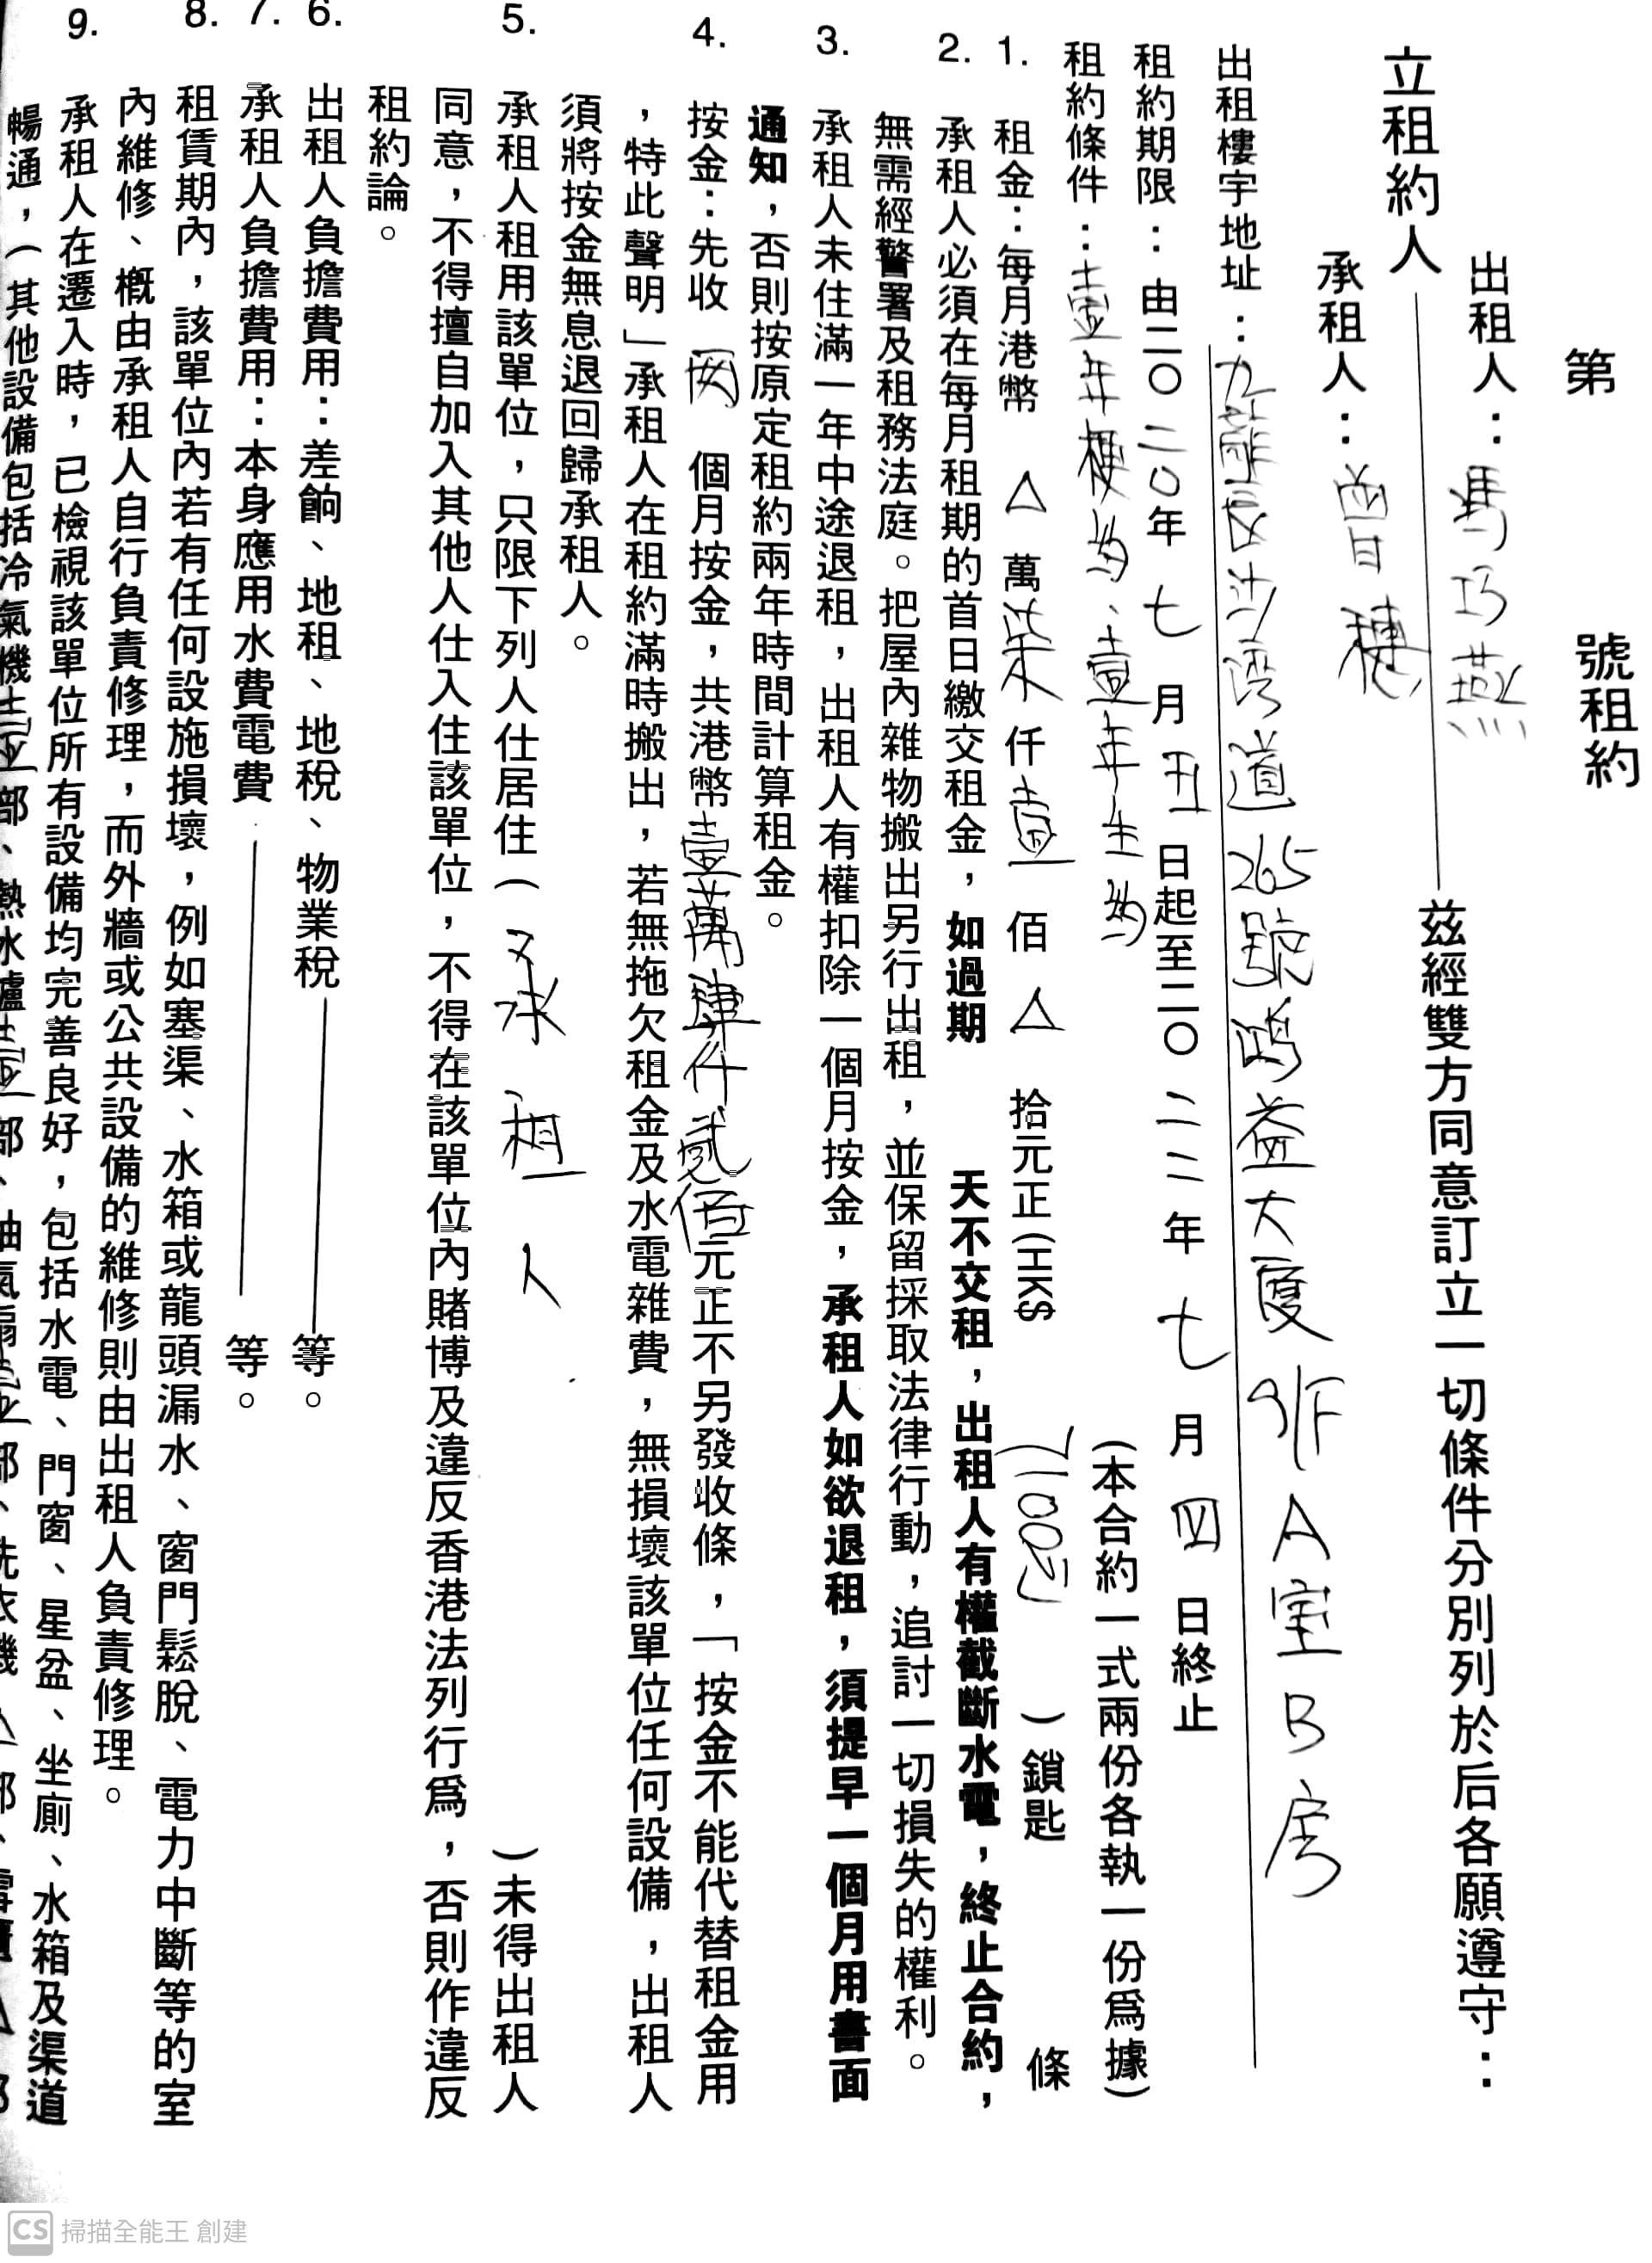 第 號租約
出租人：馮巧燕
立租約人 茲經雙方同意訂立一切條件分別列於后各願遵守：
承租人：曾穗
出租樓宇地址：九龍長沙灣道265號鴻益大廈9/F A室B房
租約期限：由二〇二〇年七月五日起至二〇二二年七月四日終止
租約條件：壹年梗約、壹年生約 (本合約一式兩份各執一份爲據)
1. 租金：每月港幣 △ 萬柒仟壹佰 △ 拾元正(HK$ 7100/ )鎖匙 條
2. 承租人必須在每月租期的首日繳交租金，如過期 天不交租，出租人有權截斷水電，終止合約，
無需經警署及租務法庭。把屋內雜物搬出另行出租，並保留採取法律行動，追討一切損失的權利。
3. 承租人未住滿一年中途退租，出租人有權扣除一個月按金，承租人如欲退租，須提早一個月用書面
通知，否則按原定租約兩年時間計算租金。
4. 按金：先收 两 個月按金，共港幣壹萬肆仟貳佰元正不另發收條，「按金不能代替租金用
，特此聲明」承租人在租約滿時搬出，若無拖欠租金及水電雜費，無損壞該單位任何設備，出租人
須將按金無息退回歸承租人。
5. 承租人租用該單位，只限下列人仕居住( 承租人 )未得出租人
同意，不得擅自加入其他人仕入住該單位，不得在該單位內賭博及違反香港法列行爲，否則作違反
租約論。
6. 出租人負擔費用：差餉、地租、地稅、物業稅 等。
7. 承租人負擔費用：本身應用水費電費 等。
8. 租賃期內，該單位內若有任何設施損壞，例如塞渠、水箱或龍頭漏水、窗門鬆脫、電力中斷等的室
內維修、概由承租人自行負責修理，而外牆或公共設備的維修則由出租人負責修理。
9. 承租人在遷入時，已檢視該單位所有設備均完善良好，包括水電、門窗、星盆、坐廁、水箱及渠道
暢通，(其他設備包括冷氣機壹部、熱水爐壹部、抽氣扇壹部、洗衣機△部、
CS 掃描全能王 創建